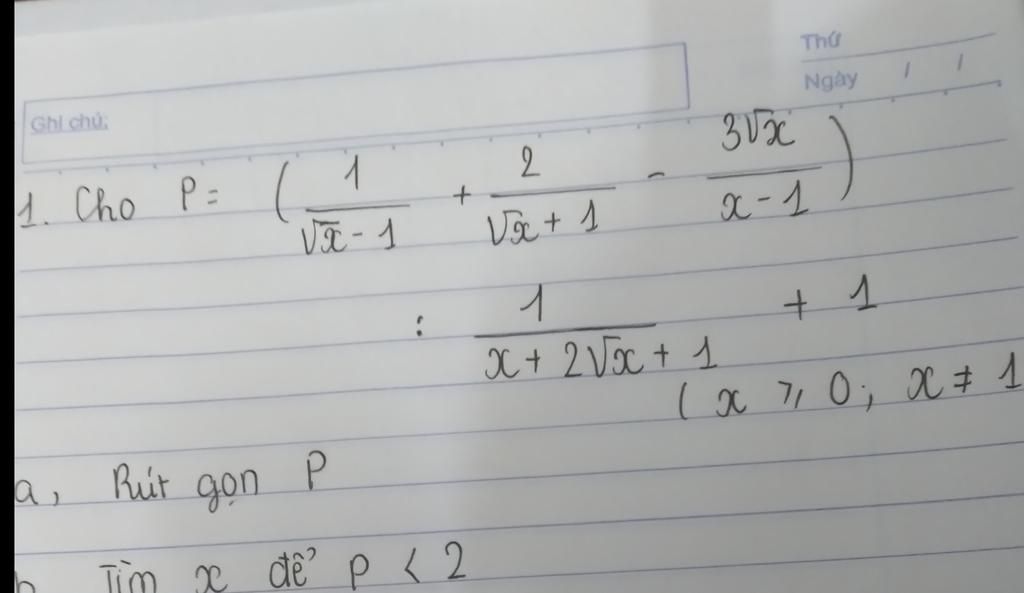 Thứ
Ngày / /
Ghi chú:
1. Cho P = ( 1/(√x - 1) + 2/(√x + 1) - 3√x/(x - 1) )
: 1/(x + 2√x + 1) + 1
( x ⩾ 0; x ≠ 1
a, Rút gọn P
b Tìm x để P < 2